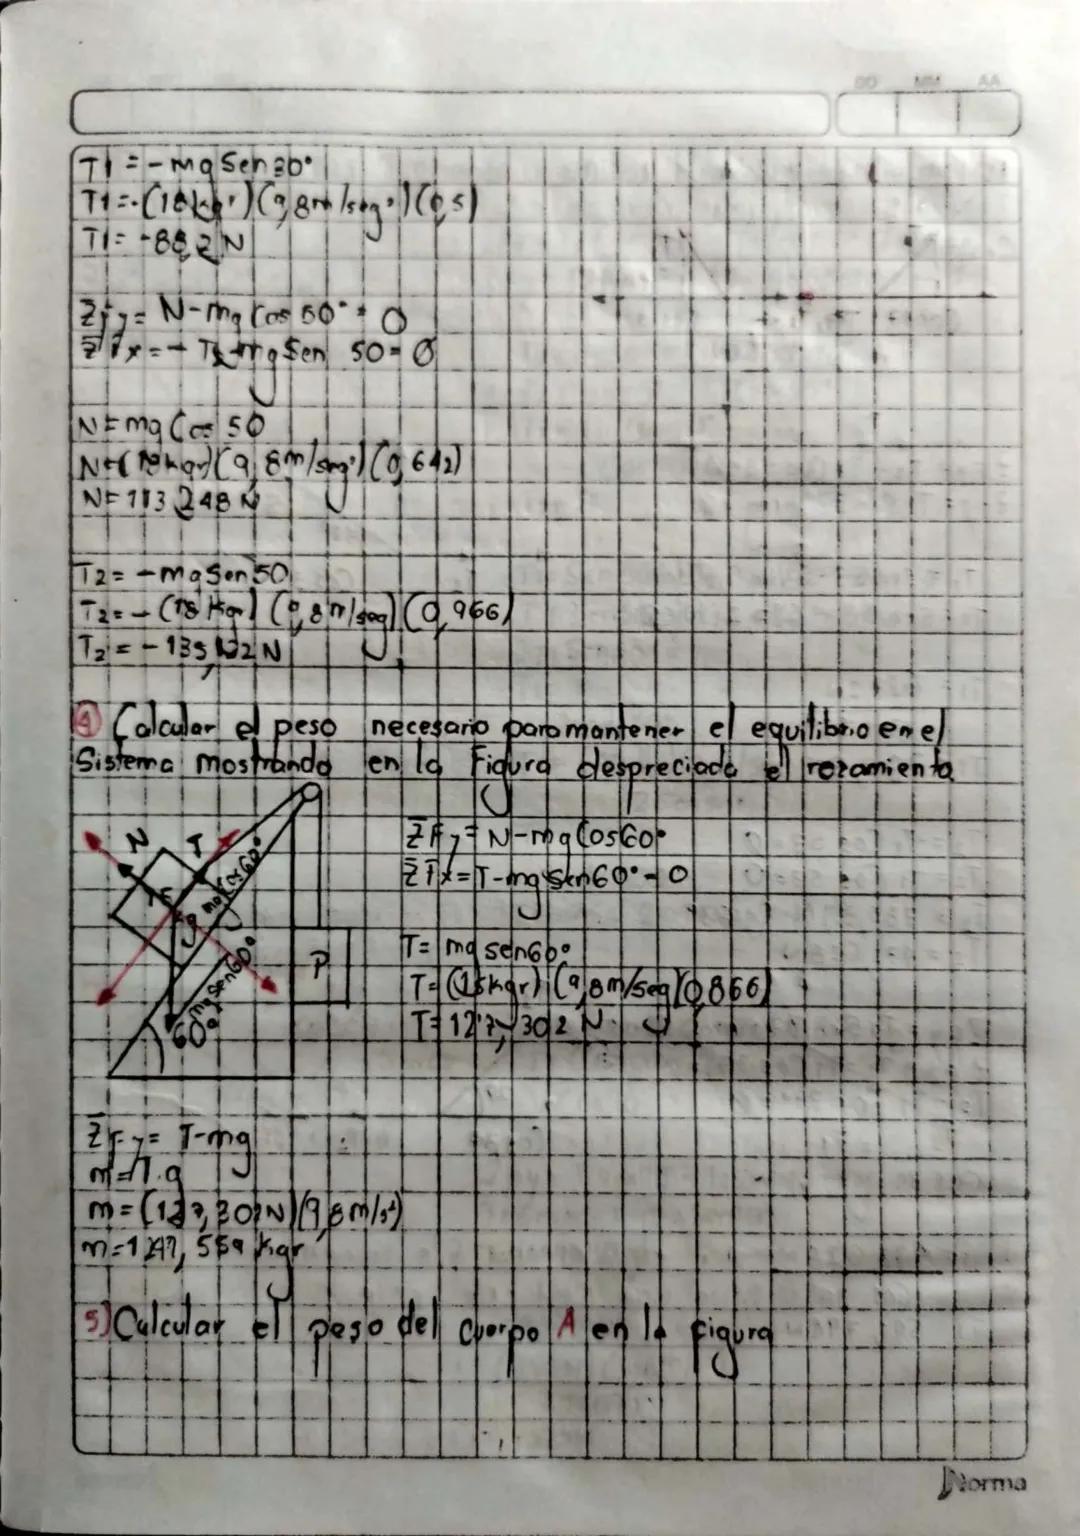 DD MM AA
T1 = - mg Sen 30°
T1 = - (18 kgr) (9,8 m/seg²) (0,5)
T1 = -88,2 N
ΣFy = N - mg Cos 50° = 0
ΣFx = - T2 - mg Sen 50 = 0
N = mg Cos 50
N = (18 kgr) (9,8 m/seg²) (0,642)
N = 113,248 N
T2 = - mg Sen 50
T2 = - (18 Kgr) (9,8 m/seg) (0,966)
T2 = - 135,132 N
4) Calcular el peso necesario para mantener el equilibrio en el
Sistema mostrando en la Figura despreciado el rozamiento
N T mg Cos 60°
mg sen 60°
P
60°
ΣFy = N - mg Cos 60°
ΣFx = T - mg Sen 60° = 0
T = mg sen 60°
T = (15 kgr) (9,8 m/seg) (0,866)
T = 127,302 N
ΣFy = T - mg
m = T.g
m = (127,302 N) (9,8 m/s²)
m = 1247,559 Kgr
5) Calcular el peso del cuerpo A en la figura
Norma